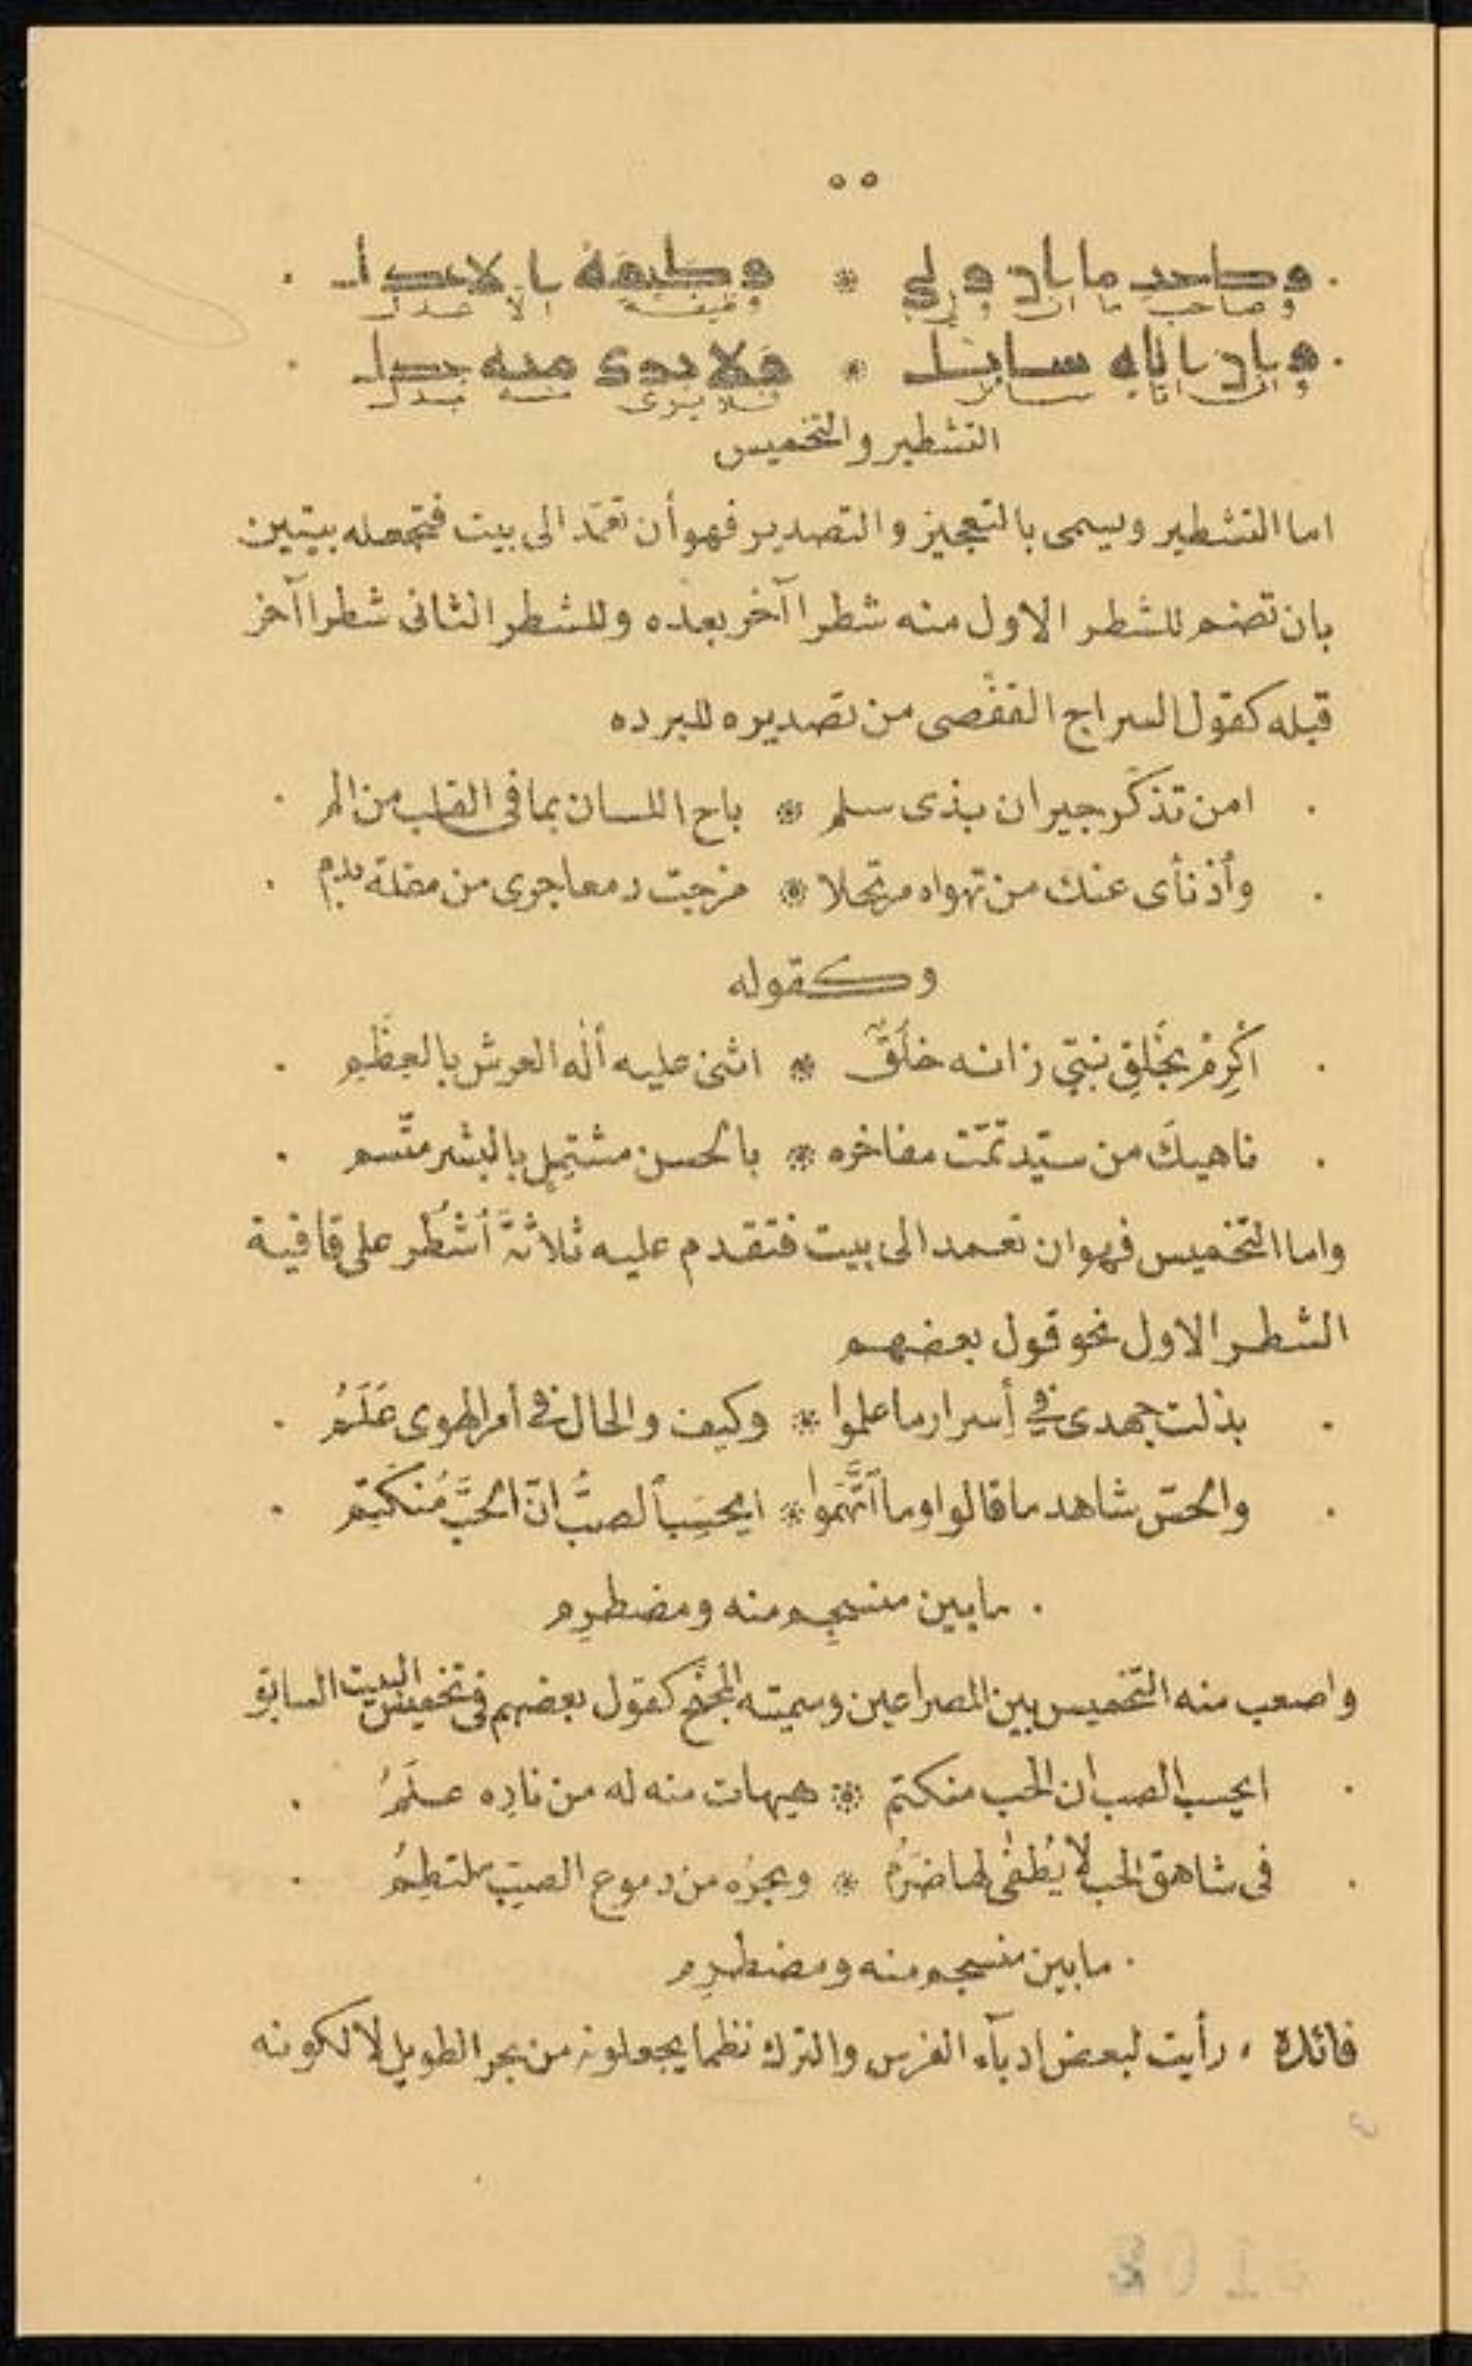 ٥٥
وصاحب ما ان ولى * وظيفة الا عدل
وصاحب ما ان ولى وظيفة الا عدل
وان اتاه سائل * فلا يرى منه بدل
وان اتاه سائل فلا يرى منه بدل
التشطير والتخميس
اما التشطير ويسمى بالتعجيز والتصدير فهو أن تعمَد الى بيت فتجعله بيتين
بان تضم للشطر الاول منه شطرا آخر بعده وللشطر الثانى شطرا آخر
قبله كقول السراج القفصى من تصديره للبرده
. امن تذكّر جيران بذى سلم * باح اللسان بما فى القلب من الم .
. وأذ نأى عنك من تهواه مرتحلا * مزجت دمعا جرى من مقلة بدم .
وكقوله
. اكْرِمْ بخَلقِ نبىّ زانه خلُقٌ * اثنى عليه أله العرش بالعِظَم .
. ناهيكَ من سيّد تمّت مفاخره * بالحسن مشتمِل بالبشر متّسم .
واما التخميس فهو ان تعمد الى بيت فتقدم عليه ثلاثةَ أشطُر على قافية
الشطر الاول نحو قول بعضهم
. بذلت جهدى في أسرار ما علموا * وكيف والحال فى أمر الهوى عَلَمُ .
. والحسّ شاهد ما قالوا وما اتَّهَموا * ايحسَب ألصبُّ انّ الحبَّ مُنكَتِم .
. مابين منسجِم منه ومضطرِم
واصعب منه التخميس بين المصراعين وسميته المجنّح كقول بعضهم فى تخميس البيت السابق
. ايحسب الصب ان الحب منكتم * هيهات منه له من نارِه علَمُ .
. فى شاهق الحب لا يُطفى لها ضرَمُ * وبحرُه من دموع الصبّ ملتطِمُ .
. مابين منسجم منه ومضطرِم
فائدة ، رأيت لبعض ادبآء الفرس والترك نظما يجعلونه من بحر الطويل لا لكونه